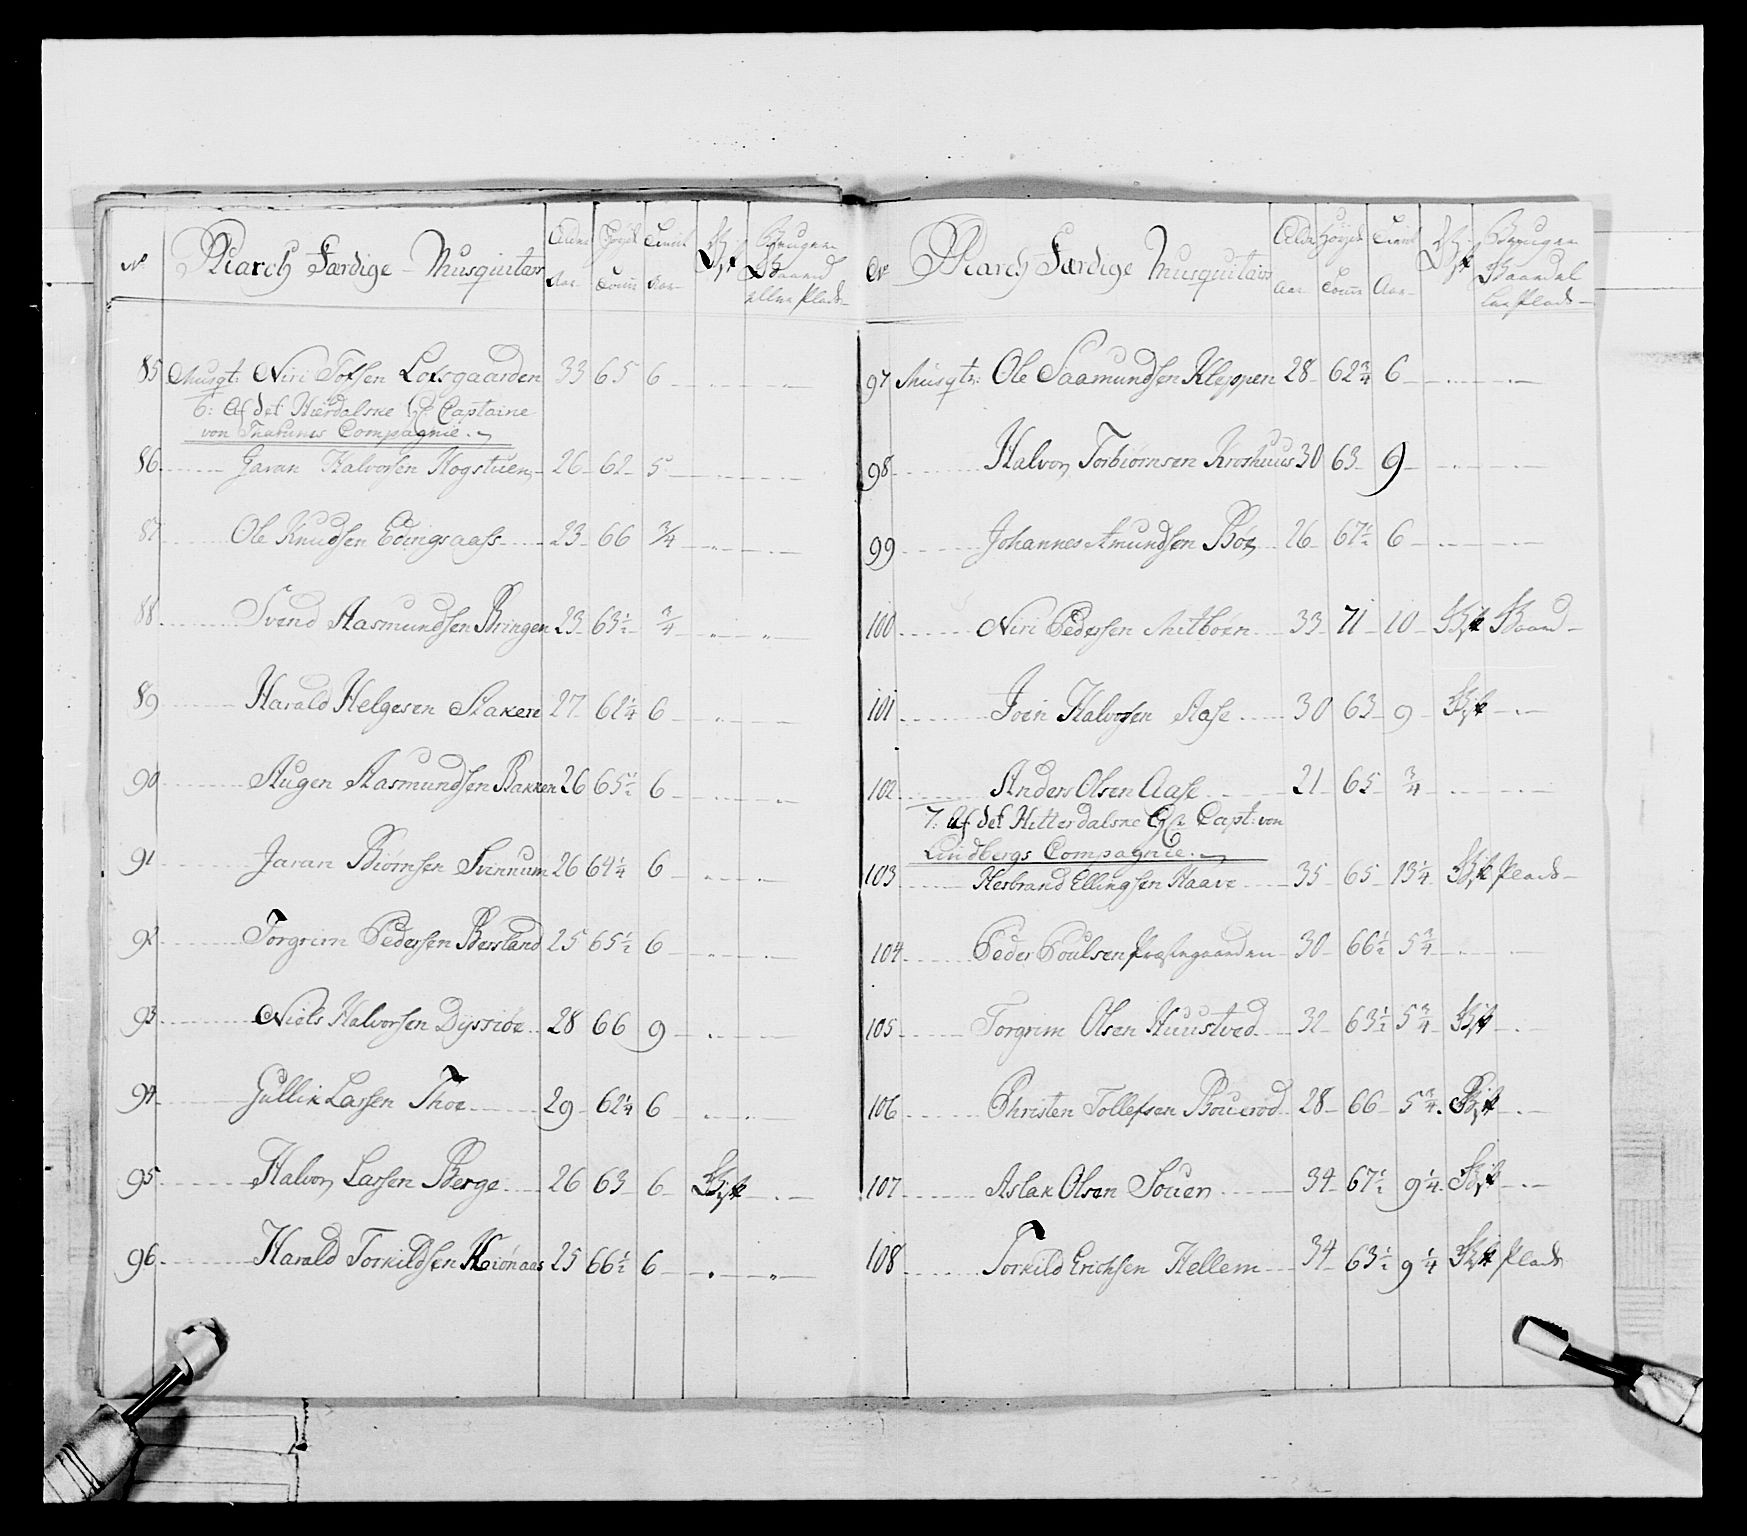 No March Færdige Musquitairs Alder Aar Høyde Tomr Tienist Aar Gift Bruger Gaard eller Plads
85 Musqt: Niri Tofsen Lofsgaarden 33 65 6
6: Af det Hierdalske Captaine
von Compagnie.
86 Jaran Halvorsen Hogstuen 26 62 5
87 Ole Knudsen 23 66 3/4
88 Svend Aasmundsen Bringen 23 63½ 3/4
89 Harald Helgesen Staken 27 62¼ 6
90 Augen Aasmundsen Bakken 26 65½ 6
91 Jaran Biørnsen Svinnum 26 64¼ 6
92 Torgrim Pedersen Bersland 25 65½ 6
93 Niels Halvorsen Dyssiøe 28 66 9
94 Gullik Larsen Thoe 29 62¼ 6
95 Halvor Larsen Berge 26 63 6 Gift
96 Harald Torkildsen Kiønaas 25 66½ 6
No March Færdige Musquitairs Alder Aar Høyde Tomr Tienist Aar Gift Bruger Gaard el ler Plads
97 Musqtr: Ole Saamundsen Kleppen 28 62¾ 6
98 Halvor Torbiørnsen Kroshuus 30 63 9
99 Johannes Amundsen Bøe 26 67½ 6
100 Niri Pedersen Mitbøen 33 71 10 Gift Gaard
101 Joen Halvorsen Aase 30 63 9 Gift
102 Anders Olsen Aase 21 65 3/4
7: Af det Hitterdalske Capt: von
Lindbergs Compagnie.
103 Herbrand Ellingsen Haave 35 65 13¼ Gift Plads
104 Peder Poulsen Præstegaarden 30 66½ 5¾
105 Torgrim Olsen Huustved 32 63½ 5¾ Gift
106 Christen Tollefsen Bouerød 28 66 5¾ Gift
107 Aslak Olsen Souen 34 67½ 9¼ Gift
108 Torkild Erichsen Hellem 34 63½ 9¼ Gift Plads